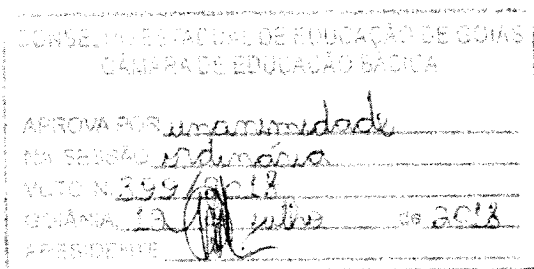 CONSELHO ESTADUAL DE EDUCAÇÃO DE GOIÁS
CÂMARA DE EDUCAÇÃO BÁSICA
APROVA POR unanimidade
NA SESSÃO ordinária
VOTO N. 399/2018
GOIÂNIA, 12 julho de 2018
PRESIDENTE